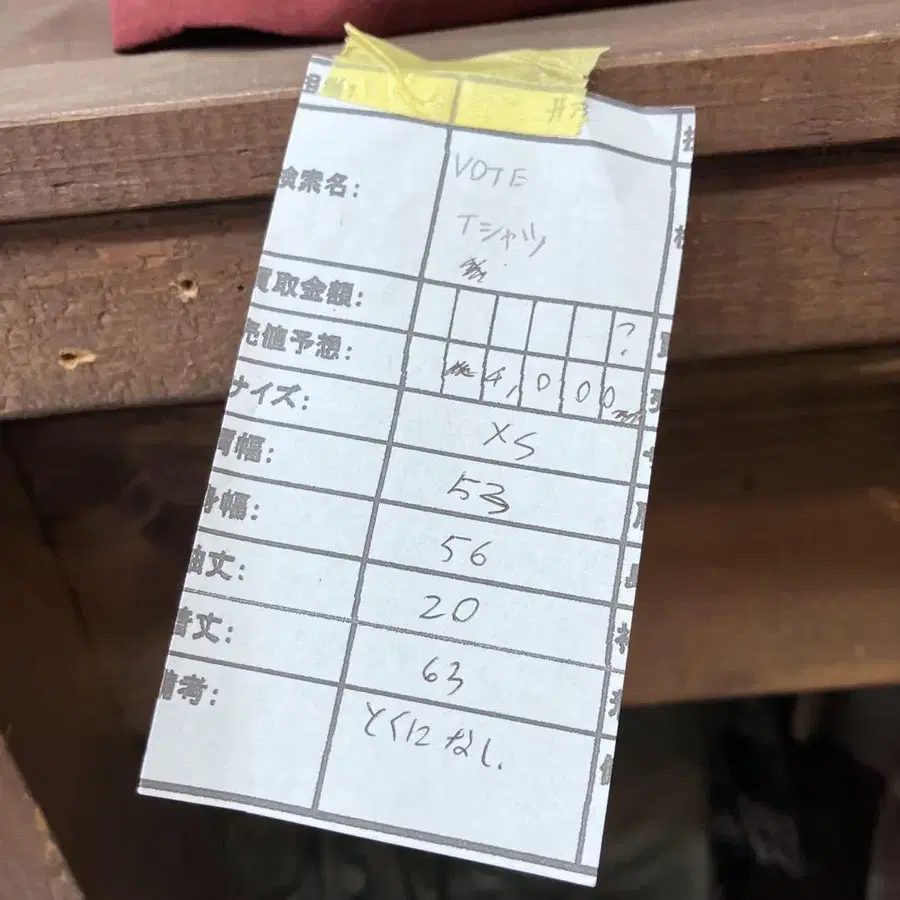 検索名: VOTE
Tシャツ
買取金額: ?
売値予想: 4,000
サイズ: XS
肩幅: 53
身幅: 56
袖丈: 20
着丈: 63
備考: とくになし.